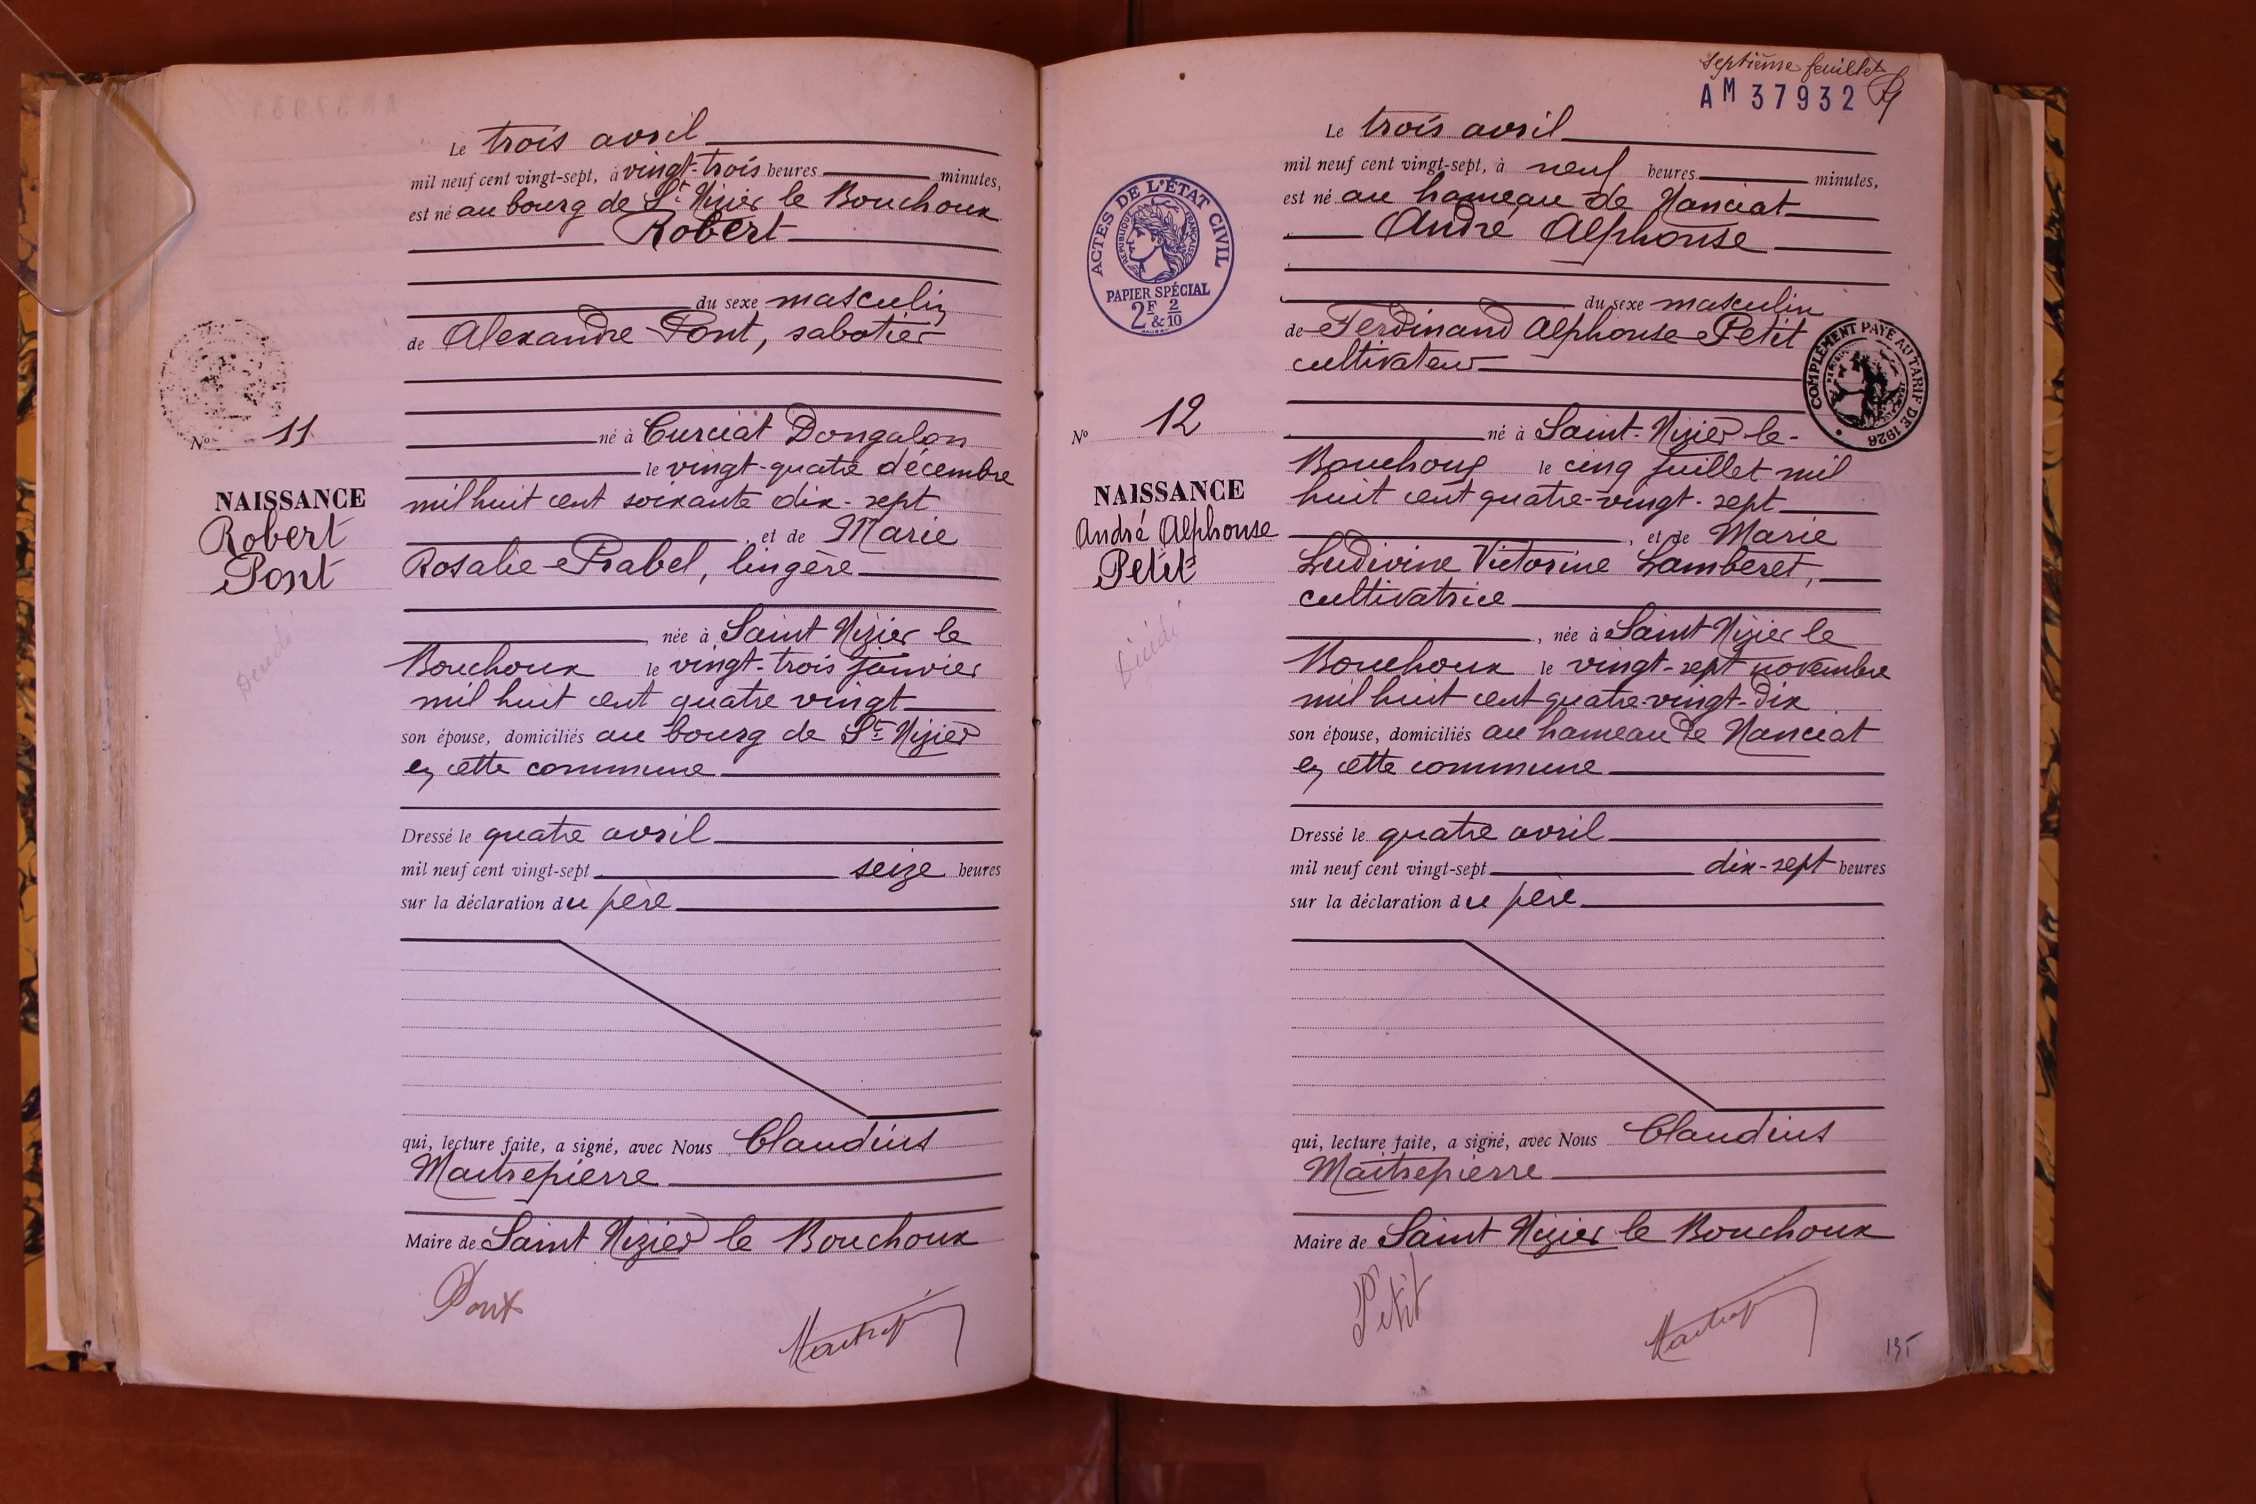 Le trois avril
mil neuf cent vingt-sept, à vingt-trois heures minutes,
est né au bourg de St Nizier le Bouchoux
Robert
du sexe masculin
de Alexandre Pont, sabotier
né à Curciat Dongalon
le vingt-quatre décembre
mil huit cent soixante dix-sept
, et de Marie
Rosalie Prabel, lingère
née à Saint Nizier le
Bouchoux le vingt-trois janvier
mil huit cent quatre vingt
son épouse, domiciliés au bourg de St Nizier
en cette commune
Dressé le quatre avril
mil neuf cent vingt-sept seize heures
sur la déclaration du père
qui, lecture faite, a signé, avec Nous Claudius
Maitrepierre
Maire de Saint Nizier le Bouchoux
Pont
No 11
NAISSANCE
Robert
Pont
Décédé
septième feuillet
AM 37932
Le trois avril
mil neuf cent vingt-sept, à neuf heures minutes,
est né au hameau de Nanciat
André Alphonse
du sexe masculin
de Ferdinand Alphonse Petit
cultivateur
né à Saint-Nizier-le-
Bouchoux le cinq juillet mil
huit cent quatre-vingt-sept
, et de Marie
Ludivine Victorine Lamberet,
cultivatrice
, née à Saint Nizier le
Bouchoux le vingt-sept novembre
mil huit cent quatre-vingt-dix
son épouse, domiciliés au hameau de Nanciat
en cette commune
Dressé le quatre avril
mil neuf cent vingt-sept dix-sept heures
sur la déclaration du père
qui, lecture faite, a signé, avec Nous Claudius
Maitrepierre
Maire de Saint Nizier le Bouchoux
Petit
135
ACTES DE L'ÉTAT CIVIL
RÉPUBLIQUE FRANÇAISE
PAPIER SPÉCIAL
2F & 2/10
COMPLÉMENT PAYÉ AU TARIF DE 1926
No 12
NAISSANCE
André Alphonse
Petit
Décédé